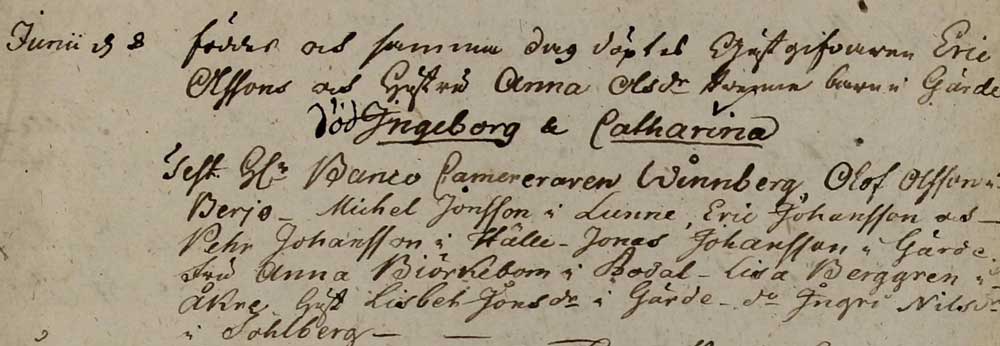 Junii d 8 föddes och samma dag döptes Gästgifvaren Eric
Olssons och Hustru Anna Olsdr barn i Gärde
död Ingeborg & Catharina
Test. Hr Banco Camereraren Winnberg, Olof Olsson i
Berjo - Michel Jönsson i Lunne, Eric Johansson och
Pehr Johansson i Hälle - Jonas Johansson i Gärde.
Fru Anna Biörkebom i Bodal - Lisa Berggren i
Åkre, Hust Lisbeh Jönsdr i Gärde - do Ingri Nilsdr
i Sohlberg -